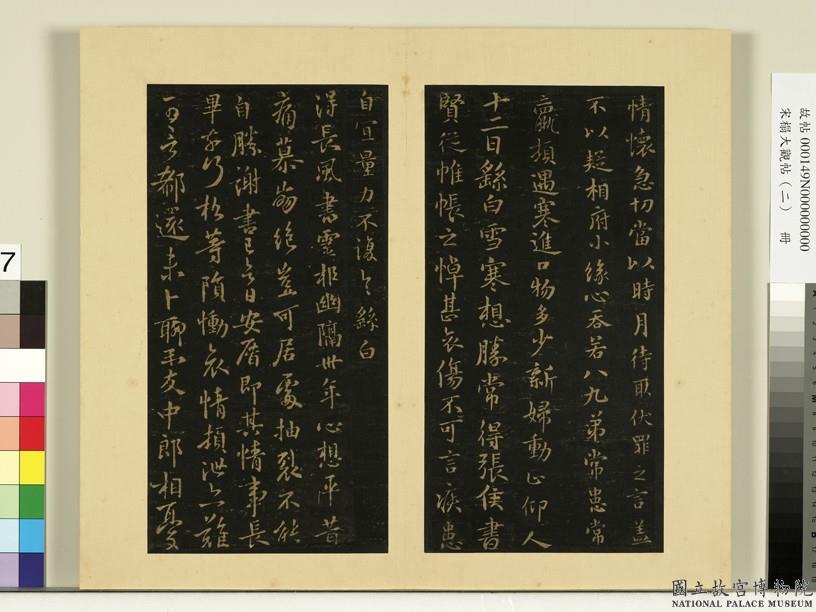 情懷急切當以時月待取伏罪之言蓋
不以疑相府小緣心吞若八九弟常患常
羸頓遇寒進口物多少新婦動止仰人
十二日繇白雪寒想勝常得張侯書
賢從帷帳之悼甚哀傷不可言疾患
自宜量力不復具繇白
得長風書靈柩幽隔卅年心想平昔
痛慕崩絕豈可居處抽裂不能
自勝謝書已具日安厝即其情事長
畢
等隕慟哀情頓泄亦難
可言都還未卜聊示友中郎相憂
7
故帖 000149N000000000
宋榻大觀帖(二) 冊
國立故宮博物院
NATIONAL PALACE MUSEUM